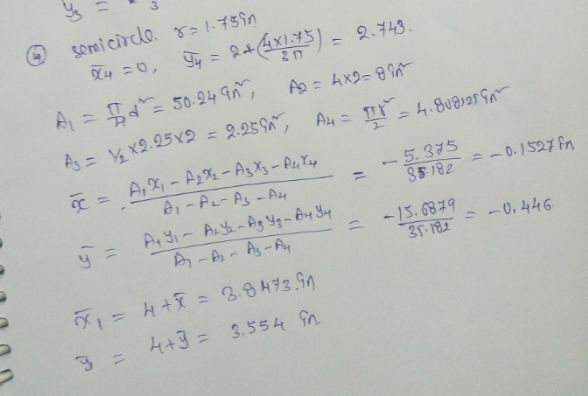 y̅₃ = 3
④ semicircle. r = 1.75in
x̅₄ = 0, y̅₄ = 2+(4×1.75/3π) = 2.743.
A₁ = π/4 d² = 50.24in², A₂ = 4×2 = 8in²
A₃ = 1/2×2.25×2 = 2.25in², A₄ = πr²/2 = 4.808125in²
x̅ = A₁x₁ - A₂x₂ - A₃x₃ - A₄x₄ / A₁ - A₂ - A₃ - A₄ = -5.375/35.182 = -0.1527in
y̅ = A₁y₁ - A₂y₂ - A₃y₃ - A₄y₄ / A₁ - A₂ - A₃ - A₄ = -15.6879/35.182 = -0.446
x̅₁ = 4+x̅ = 3.8473.in
y̅ = 4+y̅ = 3.554 in.